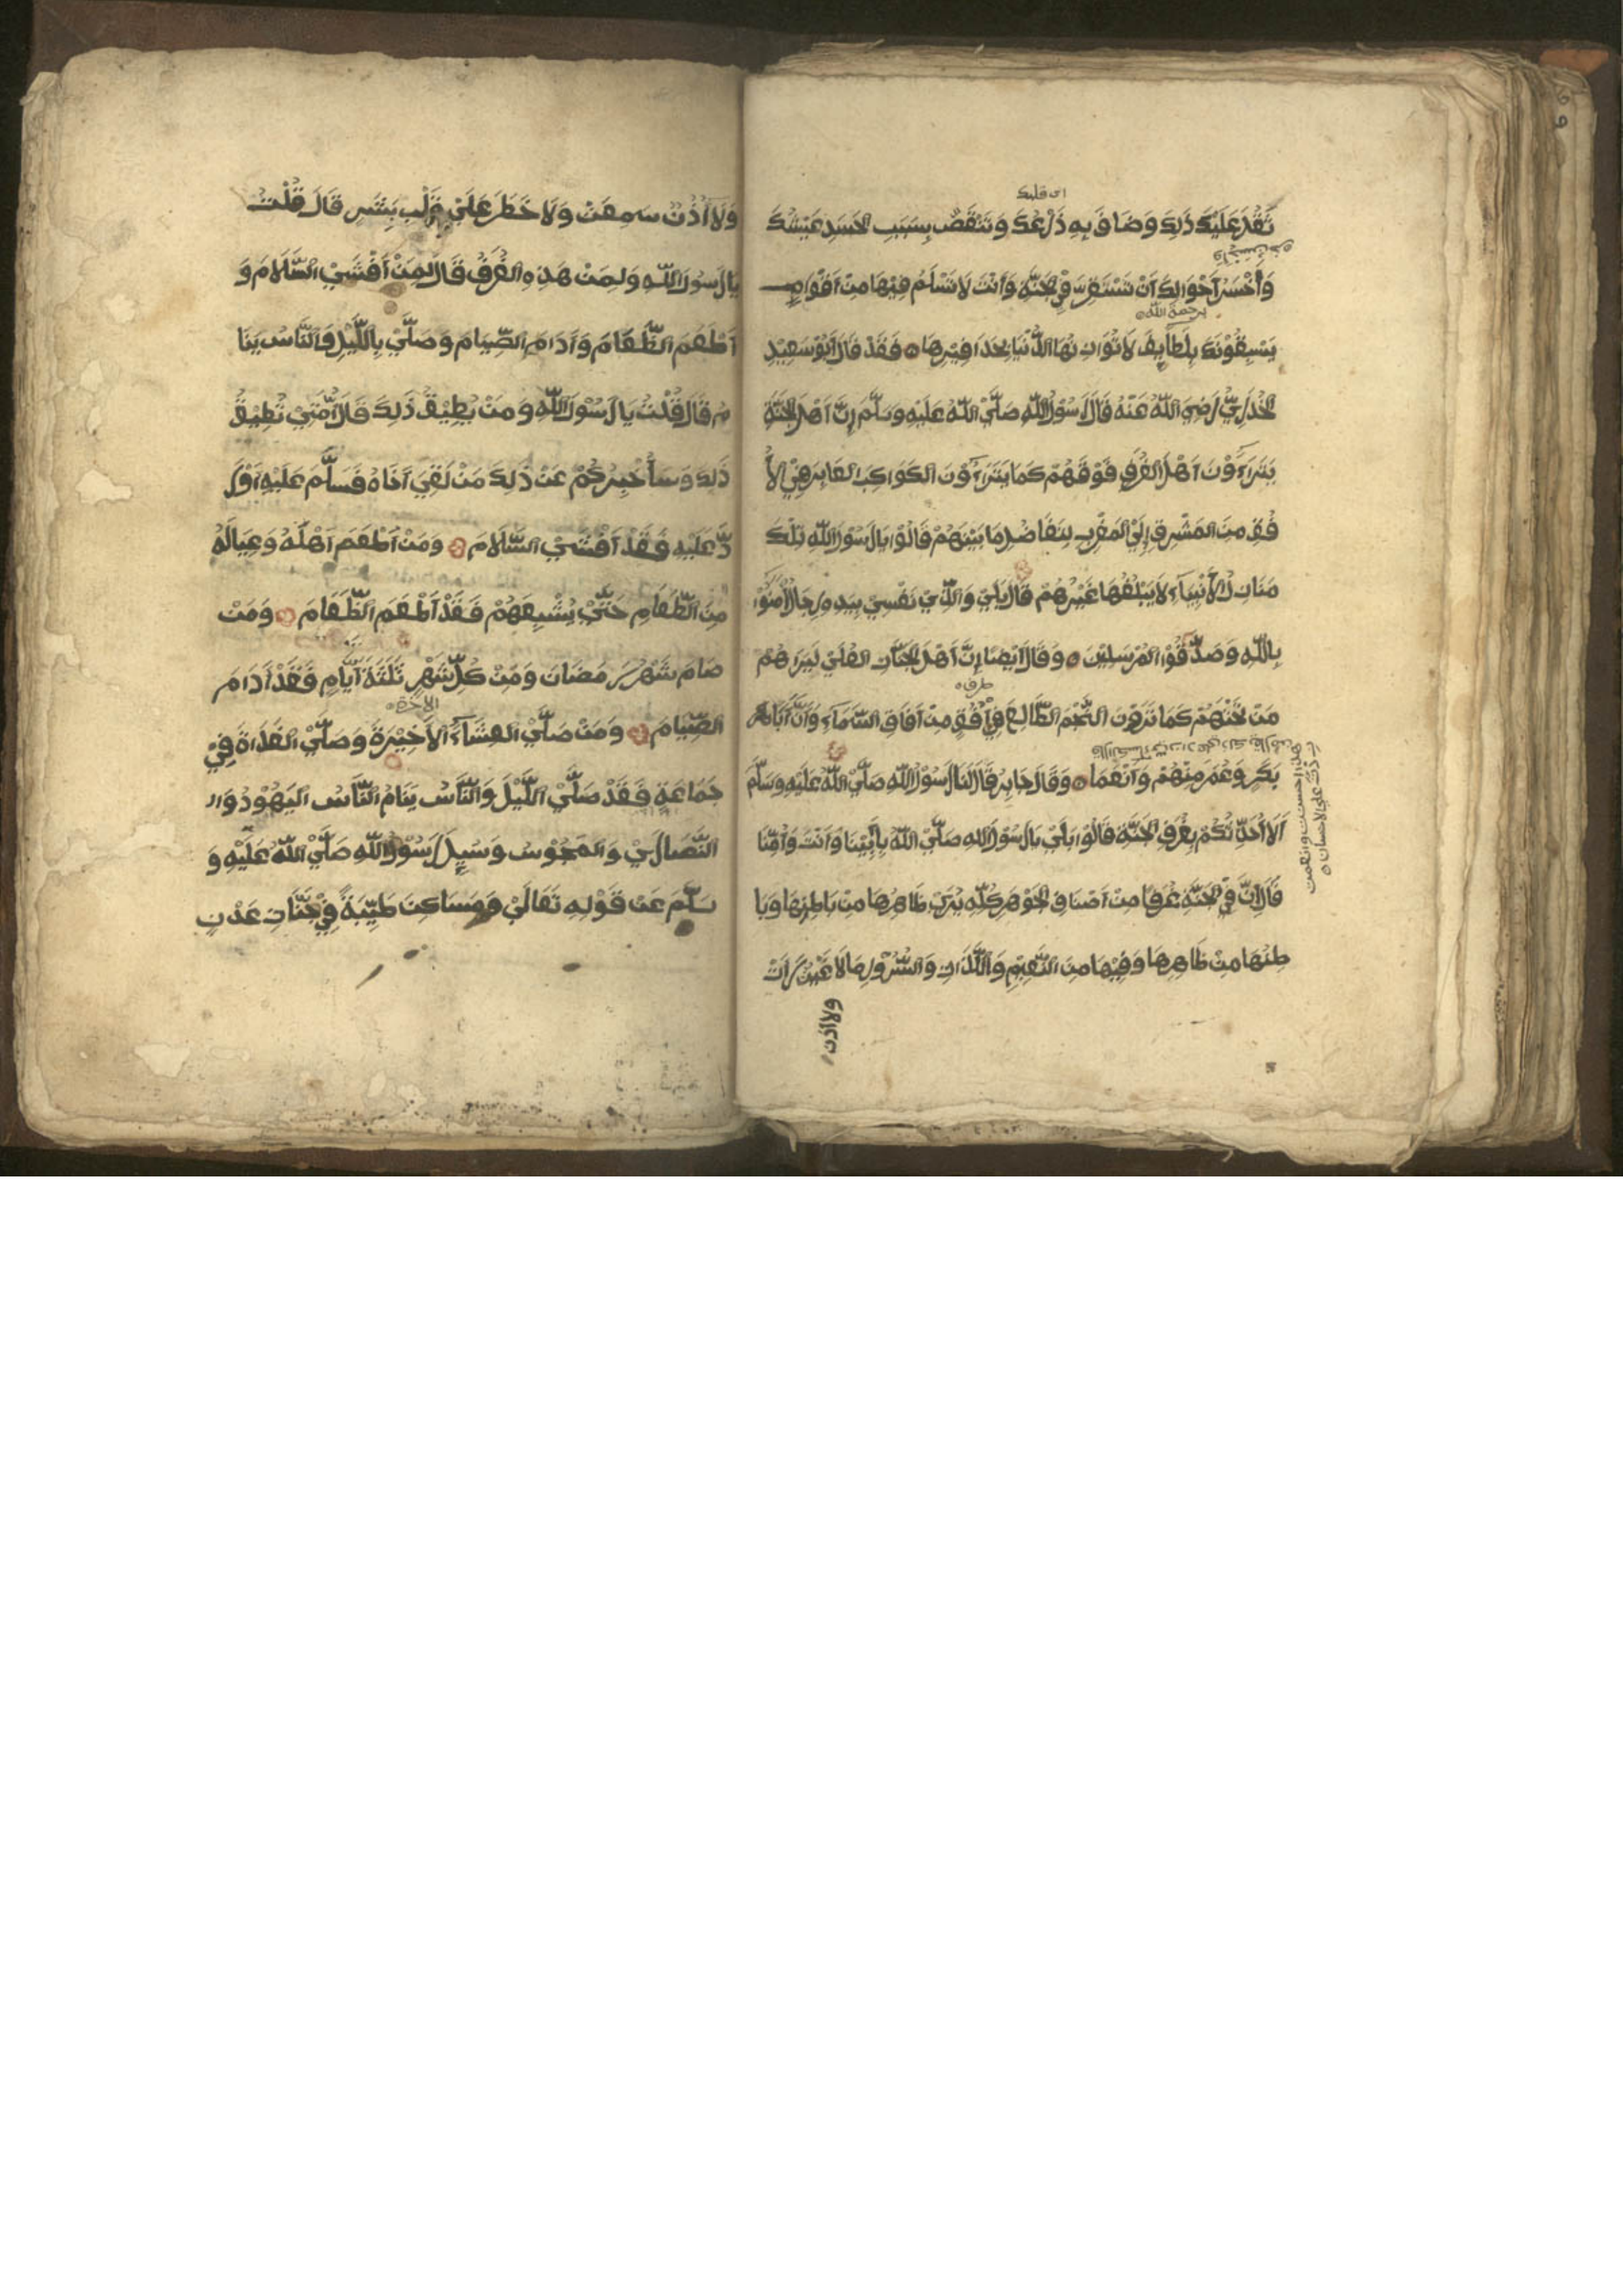 ثَقُلَ عَلَيْكَ ذَلِكَ وَضَاقَ بِهِ ذَرْعُكَ وَتَنَقَّصَ بِسَبَبِ الْحَسَدِ عَيْشُكَ
اى قلبك
وَأَحْسَنُ أَحْوَالِكَ أَنْ تَسْتَقِرَّ فِي الْجَنَّةِ وَأَنْتَ لَا تَسْلَمُ فِيْهَا مِنْ أَقْوَامٍ
يَسْبِقُوْنَكَ بِلَطَآئِفَ لَا تُوَازِنُهَا الدُّنْيَا بِحَذَافِيْرِهَا ۝ فَقَدْ قَالَ أَبُوْ سَعِيْدٍ
برحمة الله
الْخُدْرِيُّ رَضِيَ اللّٰهُ عَنْهُ قَالَ رَسُوْلُ اللّٰهِ صَلَّيْ اللّٰهُ عَلَيْهِ وَسَلَّمَ إِنَّ أَهْلَ الْجَنَّةِ
يَتَرَآءَوْنَ أَهْلَ الْغُرَفِ فَوْقَهُمْ كَمَا يَتَرَآءَوْنَ الكَوَاكِبَ الغَابِرَ فِيْ الأُ
فُقِ مِنَ المَشْرِقِ إِلَيْ المَغْرِبِ لِتَفَاضُلِ مَا بَيْنَهُمْ قَالُوْا يَا رَسُوْلَ اللّٰهِ تِلْكَ
مَنَازِلُ الأَنْبِيَآءِ لَا يَبْلُغُهَا غَيْرُهُمْ قَالَ بَلَيْ وَالَّذِيْ نَفْسِيْ بِيَدِهِ رِجَالٌ آمَنُوْا
بِاللّٰهِ وَصَدَّقُوْا المُرْسَلِيْنَ ۝ وَقَالَ أَيْضًا إِنَّ أَهْلَ الْجَنَّاتِ العُلَيْ لَيَرَاهُمْ
مَنْ تَحْتَهُمْ كَمَا تَرَوْنَ النَّجْمَ الطَّالِعَ فِيْ أُفُقٍ مِنْ آفَاقِ السَّمَآءِ وَأَنَّ أَبَا
طرف
بَكْرٍ وَعُمَرَ مِنْهُمْ وَأَنْعَمَا ۝ وَقَالَ جَابِرٌ قَالَ لَنَا رَسُوْلُ اللّٰهِ صَلَّيْ اللّٰهُ عَلَيْهِ وَسَلَّمَ
أَلَا أُحَدِّثُكُمْ بِغُرَفِ الْجَنَّةِ قَالُوْا بَلَيْ يَا رَسُوْلَ اللّٰهِ صَلَّيْ اللّٰهُ بِأَبِيْنَا وَأَنْتَ وَأُمِّنَا
قَالَ إِنَّ فِيْ الْجَنَّةِ غُرَفًا مِنْ أَصْنَافِ الْجَوْهَرِ كُلِّهِ يُرَيْ ظَاهِرُهَا مِنْ بَاطِنِهَا وَبَا
طِنُهَا مِنْ ظَاهِرِهَا وَفِيْهَا مِنَ النَّعِيْمِ وَاللَّذَّاتِ وَالسُّرُوْرِ مَا لَا عَيْنٌ رَأَتْ
ولااذن
وَلَا أُذُنٌ سَمِعَتْ وَلَا خَطَرَ عَلَيْ قَلْبِ بَشَرٍ قَالَ قُلْتُ
يَا رَسُوْلَ اللّٰهِ وَلِمَنْ هَذِهِ الغُرَفُ قَالَ لِمَنْ أَفْشَيْ السَّلَامَ وَ
أَطْعَمَ الطَّعَامَ وَأَدَامَ الصِّيَامَ وَصَلَّيْ بِاللَّيْلِ وَالنَّاسُ يَنَا
مُ قَالَ قُلْتُ يَا رَسُوْلَ اللّٰهِ وَمَنْ يُطِيْقُ ذَلِكَ قَالَ أُمَّتِيْ تُطِيْقُ
ذَلِكَ وَسَأُخْبِرُكُمْ عَنْ ذَلِكَ مَنْ لَقِيَ أَخَاهُ فَسَلَّمَ عَلَيْهِ أَوْ رَ
دَّ عَلَيْهِ فَقَدْ أَفْشَيْ السَّلَامَ ۝ وَمَنْ أَطْعَمَ أَهْلَهُ وَعِيَالَهُ
مِنَ الطَّعَامِ حَتَّيْ يُشْبِعَهُمْ فَقَدْ أَطْعَمَ الطَّعَامَ ۝ وَمَنْ
صَامَ شَهْرَ رَمَضَانَ وَمِنْ كُلِّ شَهْرٍ ثَلَثَةَ أَيَّامٍ فَقَدْ أَدَامَ
الصِّيَامَ ۝ وَمَنْ صَلَّيْ العِشَآءَ الأَخِيْرَةَ وَصَلَّيْ الغَدَاةَ فِيْ
الاخرة
جَمَاعَةٍ فَقَدْ صَلَّيْ اللَّيْلَ وَالنَّاسُ يَنَامُ النَّاسُ اليَهُوْدُ وَال
النَّصَارَيْ وَالمَجُوْسَ وَسُئِلَ رَسُوْلُ اللّٰهِ صَلَّيْ اللّٰهُ عَلَيْهِ وَ
سَلَّمَ عَنْ قَوْلِهِ تَعَالَيْ وَمَسَاكِنَ طَيِّبَةً فِيْ جَنَّاتِ عَدْنٍ